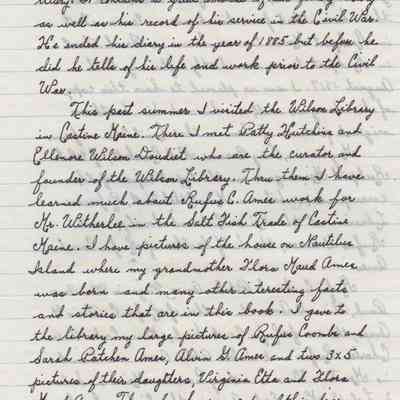 as well as his record of his service in the Civil War.
He ended his diary in the year of 1885 but before he
did he tells of his life and work prior to the Civil
War.
This past summer I visited the Wilson Library
in Castine Maine. There I met Patty Hutchins and
Ellenore Wilson Doudiet who are the curator and
founder of the Wilson Library. Thru them I have
learned much about Rufus C. Ames work for
Mr. Witherlee in the Salt Fish Trade of Castine
Maine. I have pictures of the house on Nautilus
Island where my grandmother Flora Maud Ames
was born and many other interesting facts
and stories that are in this book. I gave to
the library my large pictures of Rufus Coombs and
Sarah Patchen Ames, Alvin G. Ames and two 3x5
pictures of their daughters, Virginia Etta and Flora